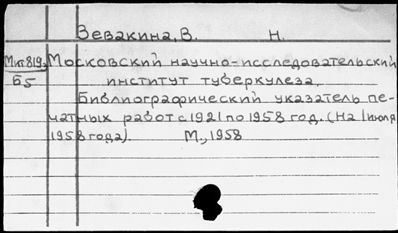 Зевакина, В. Н.
Мит819, Московский научно-исследовательский
Б5 институт туберкулеза.
Библиографический указатель пе-
чатных работ с 1921 по 1958 год. (На 1 июля
1958 года). М., 1958